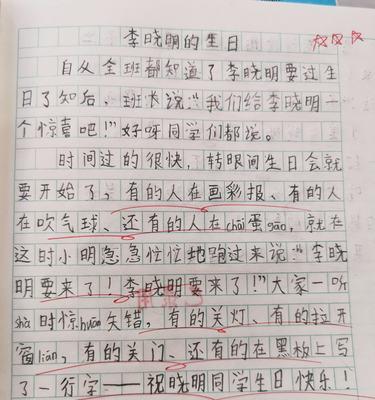 李晓明的生日
自从全班都知道了李晓明要过生
日了知后，班长说：“我们给李晓明一
个惊喜吧！”好呀同学们都说。
时间过的很快，转眼间生日会就
要开始了，有的人在画彩报、有的人
在吹气球、还有的人在chāi蛋gāo，就在
这时小明急急忙忙地跑过来说：“李晓
明要来了！李晓明要来了！”大家一听
shà时惊huāng失错，有的关灯、有的拉开
窗lián，有的关门、还有的在黑板上写
了一行字——祝晓明同学生日快乐！